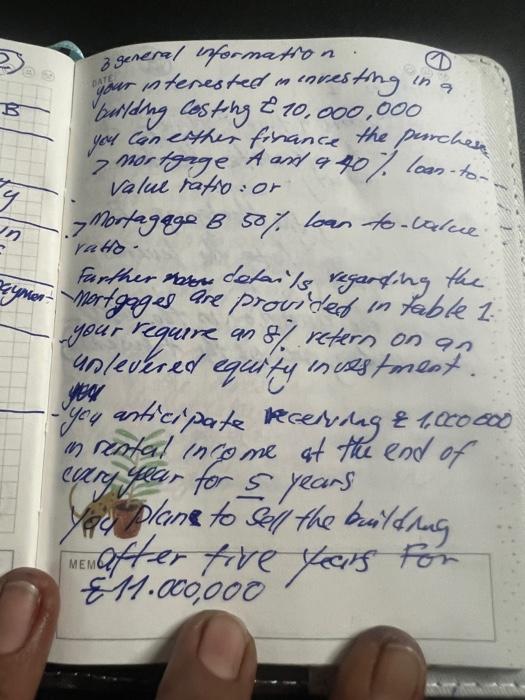 3 general information.
①
DATE
your interested in investing in a
building costing £ 10,000,000
you can either finance the purchase
> mortgage A and a 40% loan-to-
value ratio: or
-> Mortagage B 50% loan to-value
ratio.
Further details regarding the
mortgages are provided in table 1.
your require an 8% retern on an
unlevered equity investment.
you
- you anticipate receiving £ 1,000 000
in rental income at the end of
every year for 5 years
You plan to sell the building
MEM
after five years For
£11.000,000
2
B
ty
in
payment